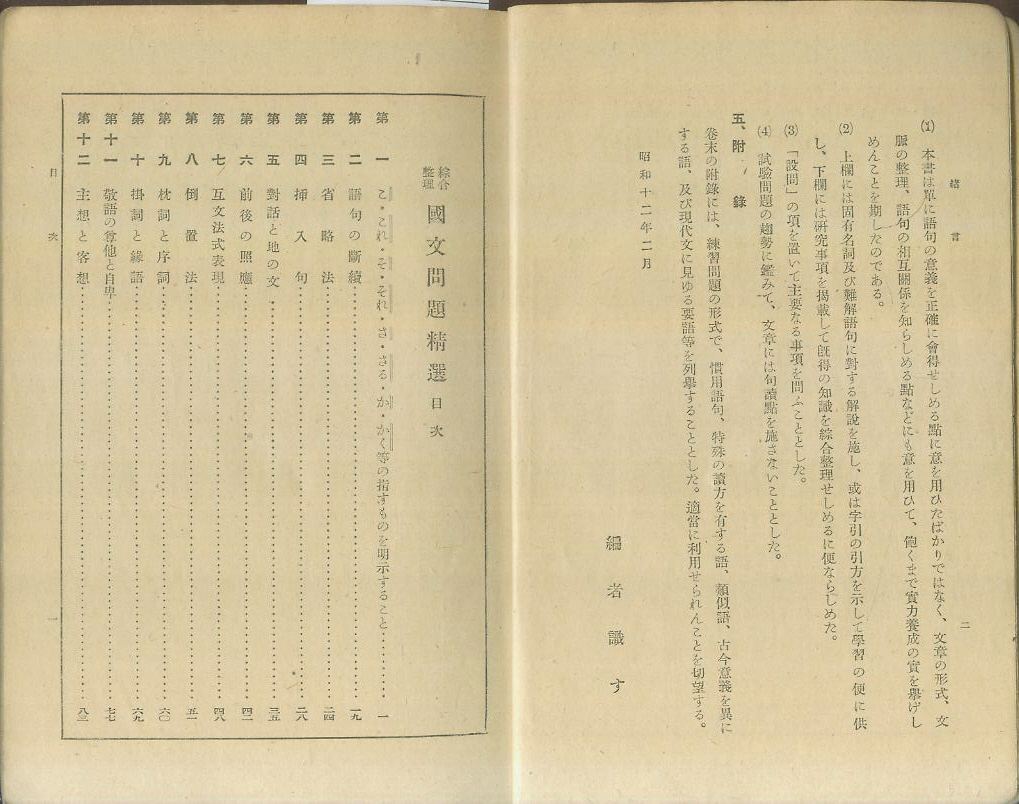 緒言
二
⑴ 本書は單に語句の意義を正確に會得せしめる點に意を用ひたばかりではなく、文章の形式、文
脈の整理、語句の相互關係を知らしめる點などにも意を用ひて、飽くまで實力養成の實を擧げし
めんことを期したのである。
⑵ 上欄には固有名詞及び難解語句に對する解說を施し、或は字引の引方を示して學習の便に供
し、下欄には硏究事項を揭載して旣得の知識を綜合整理せしめるに便ならしめた。
⑶ 「設問」の項を置いて主要なる事項を問ふこととした。
⑷ 試驗問題の趨勢に鑑みて、文章には句讀點を施さないこととした。
五、附錄
卷末の附錄には、練習問題の形式で、慣用語句、特殊の讀方を有する語、類似語、古今意義を異に
する語、及び現代文に見ゆる要語等を列擧することとした。適當に利用せられんことを切望する。
昭和十二年二月
編者識す
綜合整理 國文問題精選 目次
第一 こ・これ・そ・それ・さ・さる・か・かく等の指すものを明示すること 一
第二 語句の斷續 一九
第三 省略法 二四
第四 揷入句 二八
第五 對話と地の文 三五
第六 前後の照應 四三
第七 互文法式表現 四八
第八 倒置法 五一
第九 枕詞と序詞 六〇
第十 掛詞と緣語 六九
第十一 敬語の尊他と自卑 七七
第十二 主想と客想 八三
目次
一